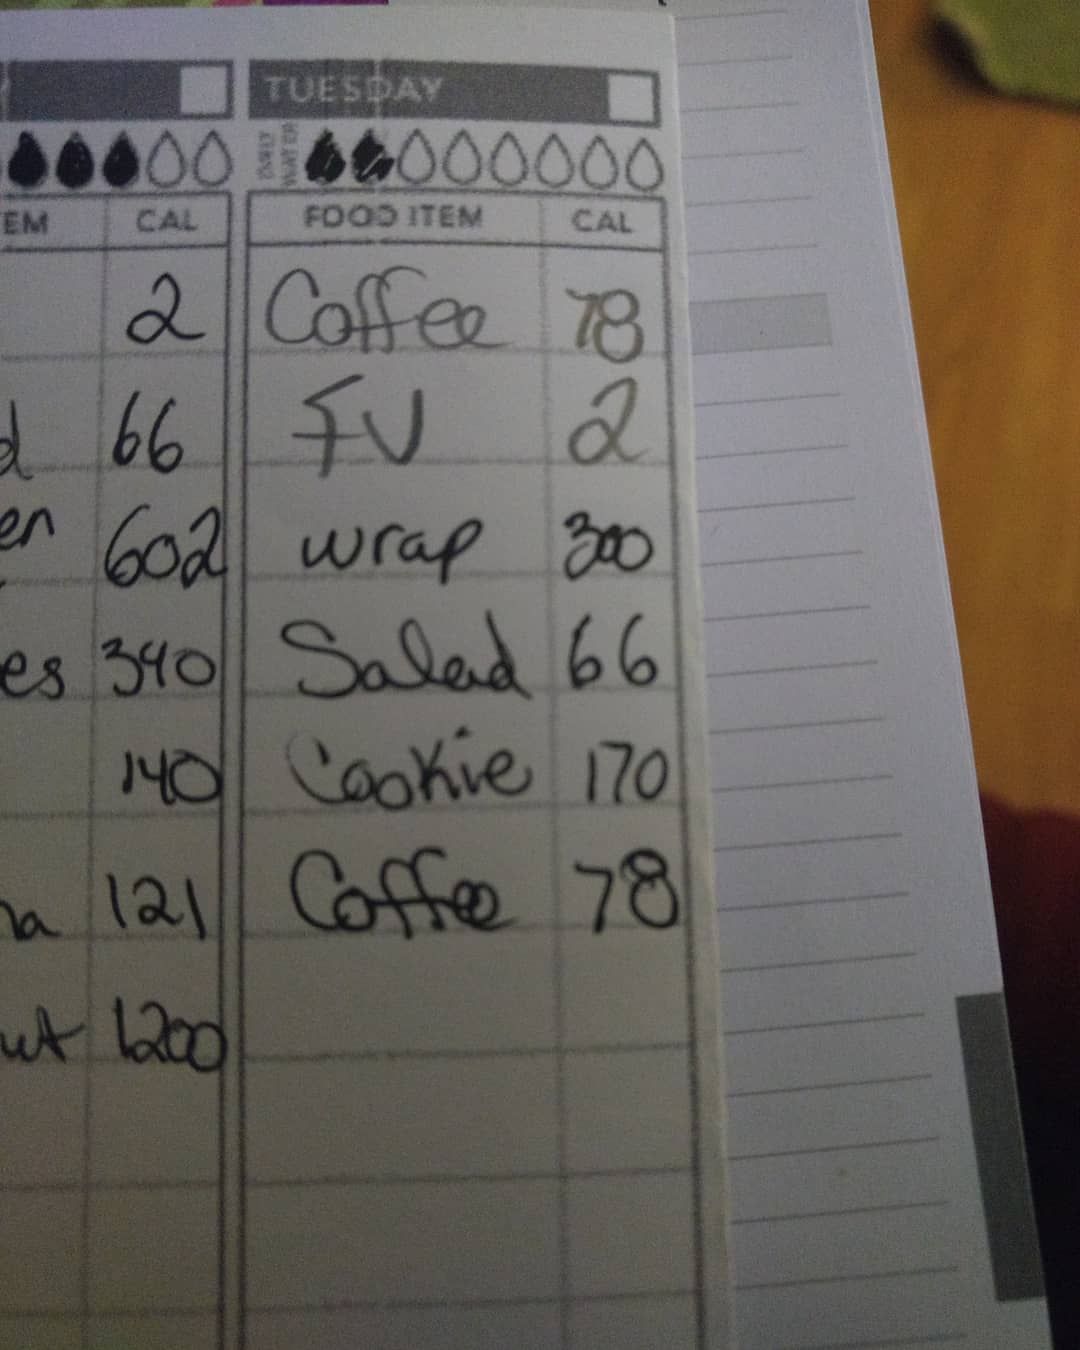 TUESDAY
DAILY WATER
EM CAL
FOOD ITEM CAL
2
d 66
en 602
es 340
140
na 121
ut 1200
Coffee 78
FV 2
wrap 300
Salad 66
Cookie 170
Coffee 78